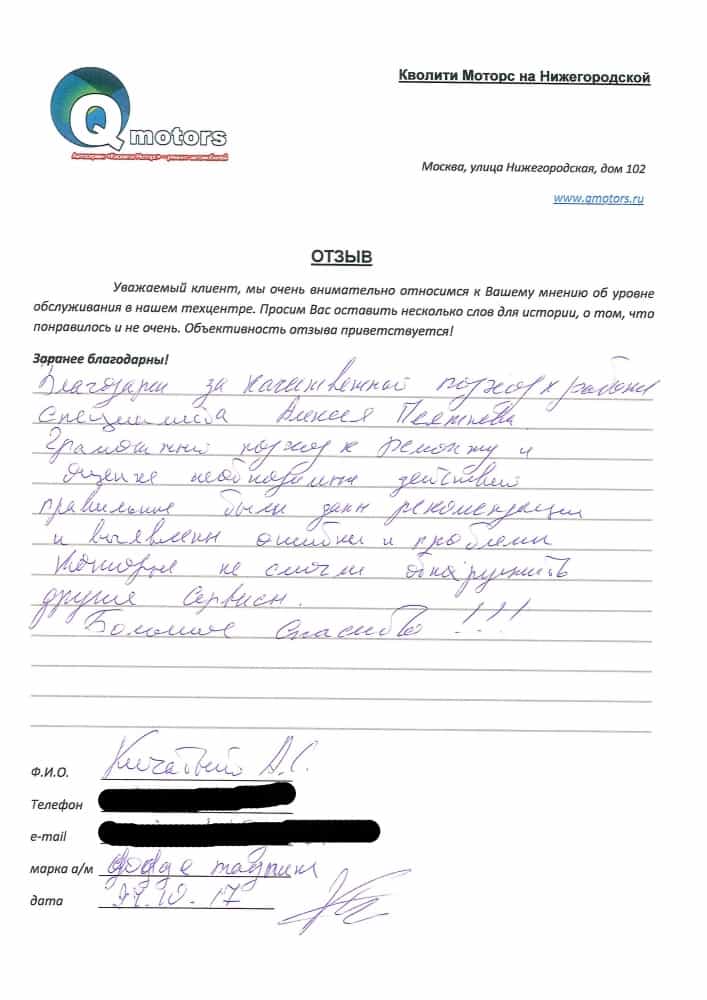 Кволити Моторс на Нижегородской
Q motors
Автосервис «Кволити Моторс» - ремонт автомобилей
Москва, улица Нижегородская, дом 102
www.qmotors.ru
ОТЗЫВ
Уважаемый клиент, мы очень внимательно относимся к Вашему мнению об уровне
обслуживания в нашем техцентре. Просим Вас оставить несколько слов для истории, о том, что
понравилось и не очень. Объективность отзыва приветствуется!
Заранее благодарны!
Благодарим за качественный подход к работе
специалиста Алексея
Грамотный подход к ремонту и
оценке необходимых действий
правильные были даны рекомендации
и выявлены ошибки и проблемы
которые не смогли обнаружить
другие сервисы.
Большое спасибо!!!
Ф.И.О. А.С.
Телефон
e-mail
марка а/м
дата 10.17